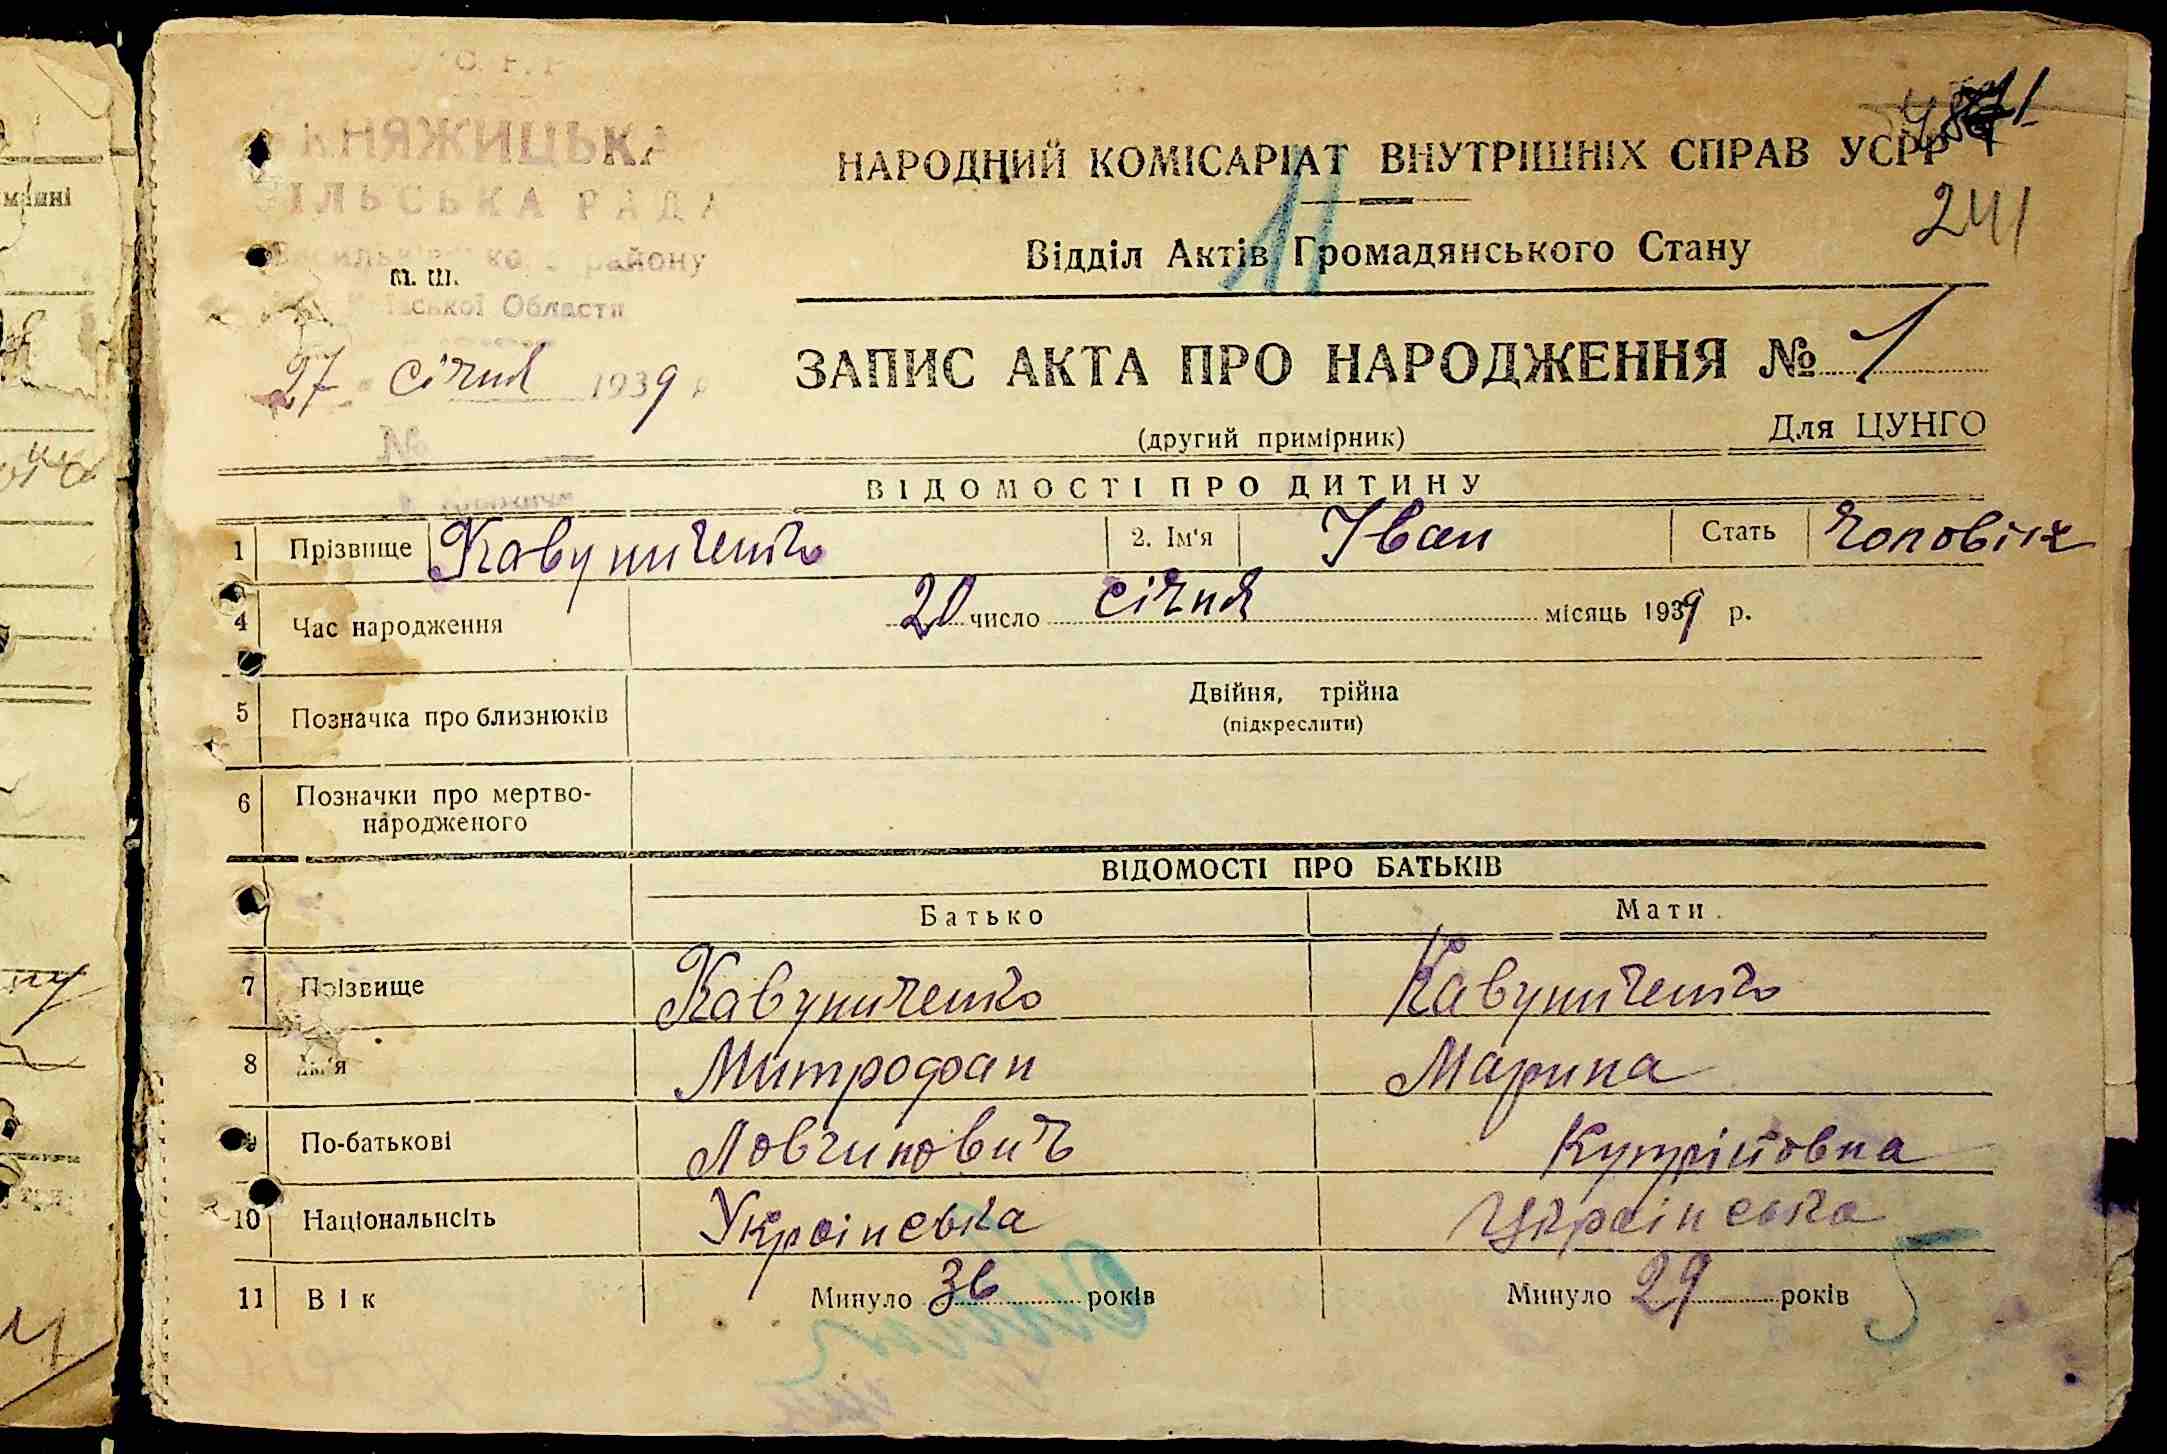 КНЯЖИЦЬКА
СІЛЬСЬКА РАДА
Васильківського району
Київської Области
м. ш.
27 січня 1939 р
№
НАРОДНИЙ КОМІСАРІАТ ВНУТРІШНІХ СПРАВ УСРР
241
11
Відділ Актів Громадянського Стану
ЗАПИС АКТА ПРО НАРОДЖЕННЯ № 1
(другий примірник) Для ЦУНГО
ВІДОМОСТІ ПРО ДИТИНУ
1 Прізвище Кавуниченко 2. Ім'я Іван Стать чоловіча
4 Час народження 20 число січня місяць 1939 р.
5 Позначка про близнюків Двійня, трійна
(підкреслити)
6 Позначки про мертво-
народженого
ВІДОМОСТІ ПРО БАТЬКІВ
Батько Мати
7 Прізвище Кавуниченко Кавуниченко
8 Ім'я Митрофан Марина
9 По-батькові Ловчинович
10 Національнсіть Українська Українська
11 Вік Минуло 36 років Минуло 29 років
5